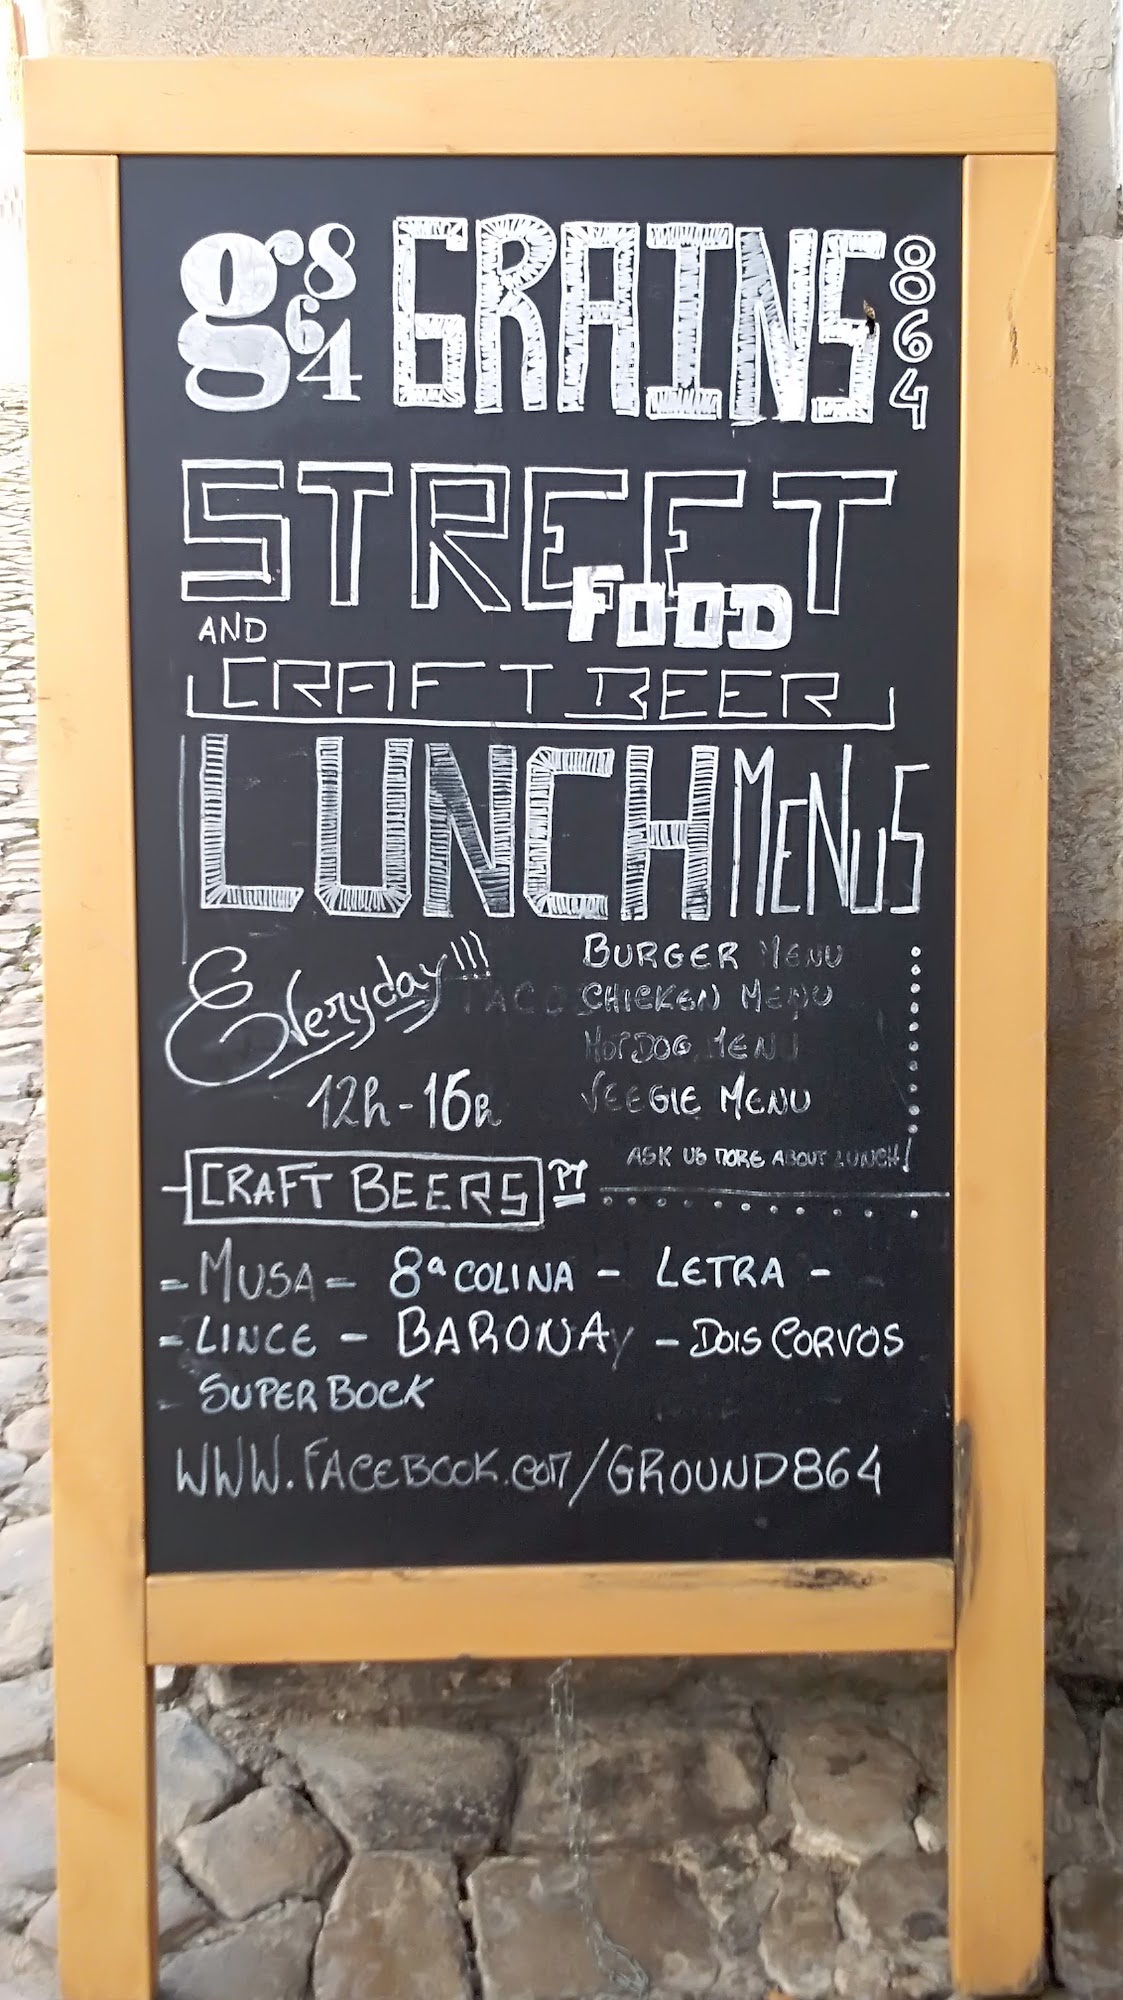 g864 GRAINS 864
STREET
FOOD
AND
CRAFT BEER
LUNCH MENUS
Everyday!!!
12h-16h
BURGER MENU
CHICKEN MENU
HOTDOG MENU
VEEGIE MENU
ASK US MORE ABOUT LUNCH!
CRAFT BEERS PT
- MUSA - 8ª COLINA - LETRA -
- LINCE - BARONA - DOIS CORVOS
- SUPER BOCK
WWW.FACEBOOK.COM/GROUND864